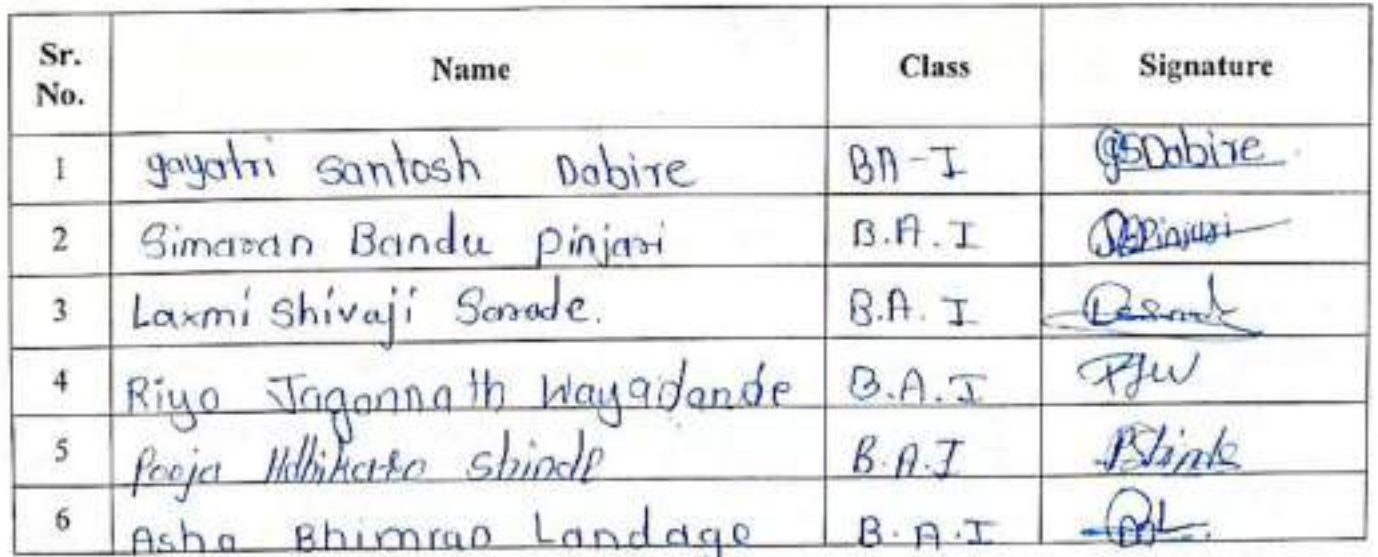 Sr. No. Name Class Signature
1 gayatri Santosh Dabire BA-I GSDabire
2 Simaran Bandu pinjari B.A.I SBPinjari
3 Laxmi Shivaji Sarade. B.A.I
4 Riya Jagannath Wayadande B.A.I RJW
5 Pooja Shinde B.A.I PShinde
6 Asha Bhimrao Landage B.A.I